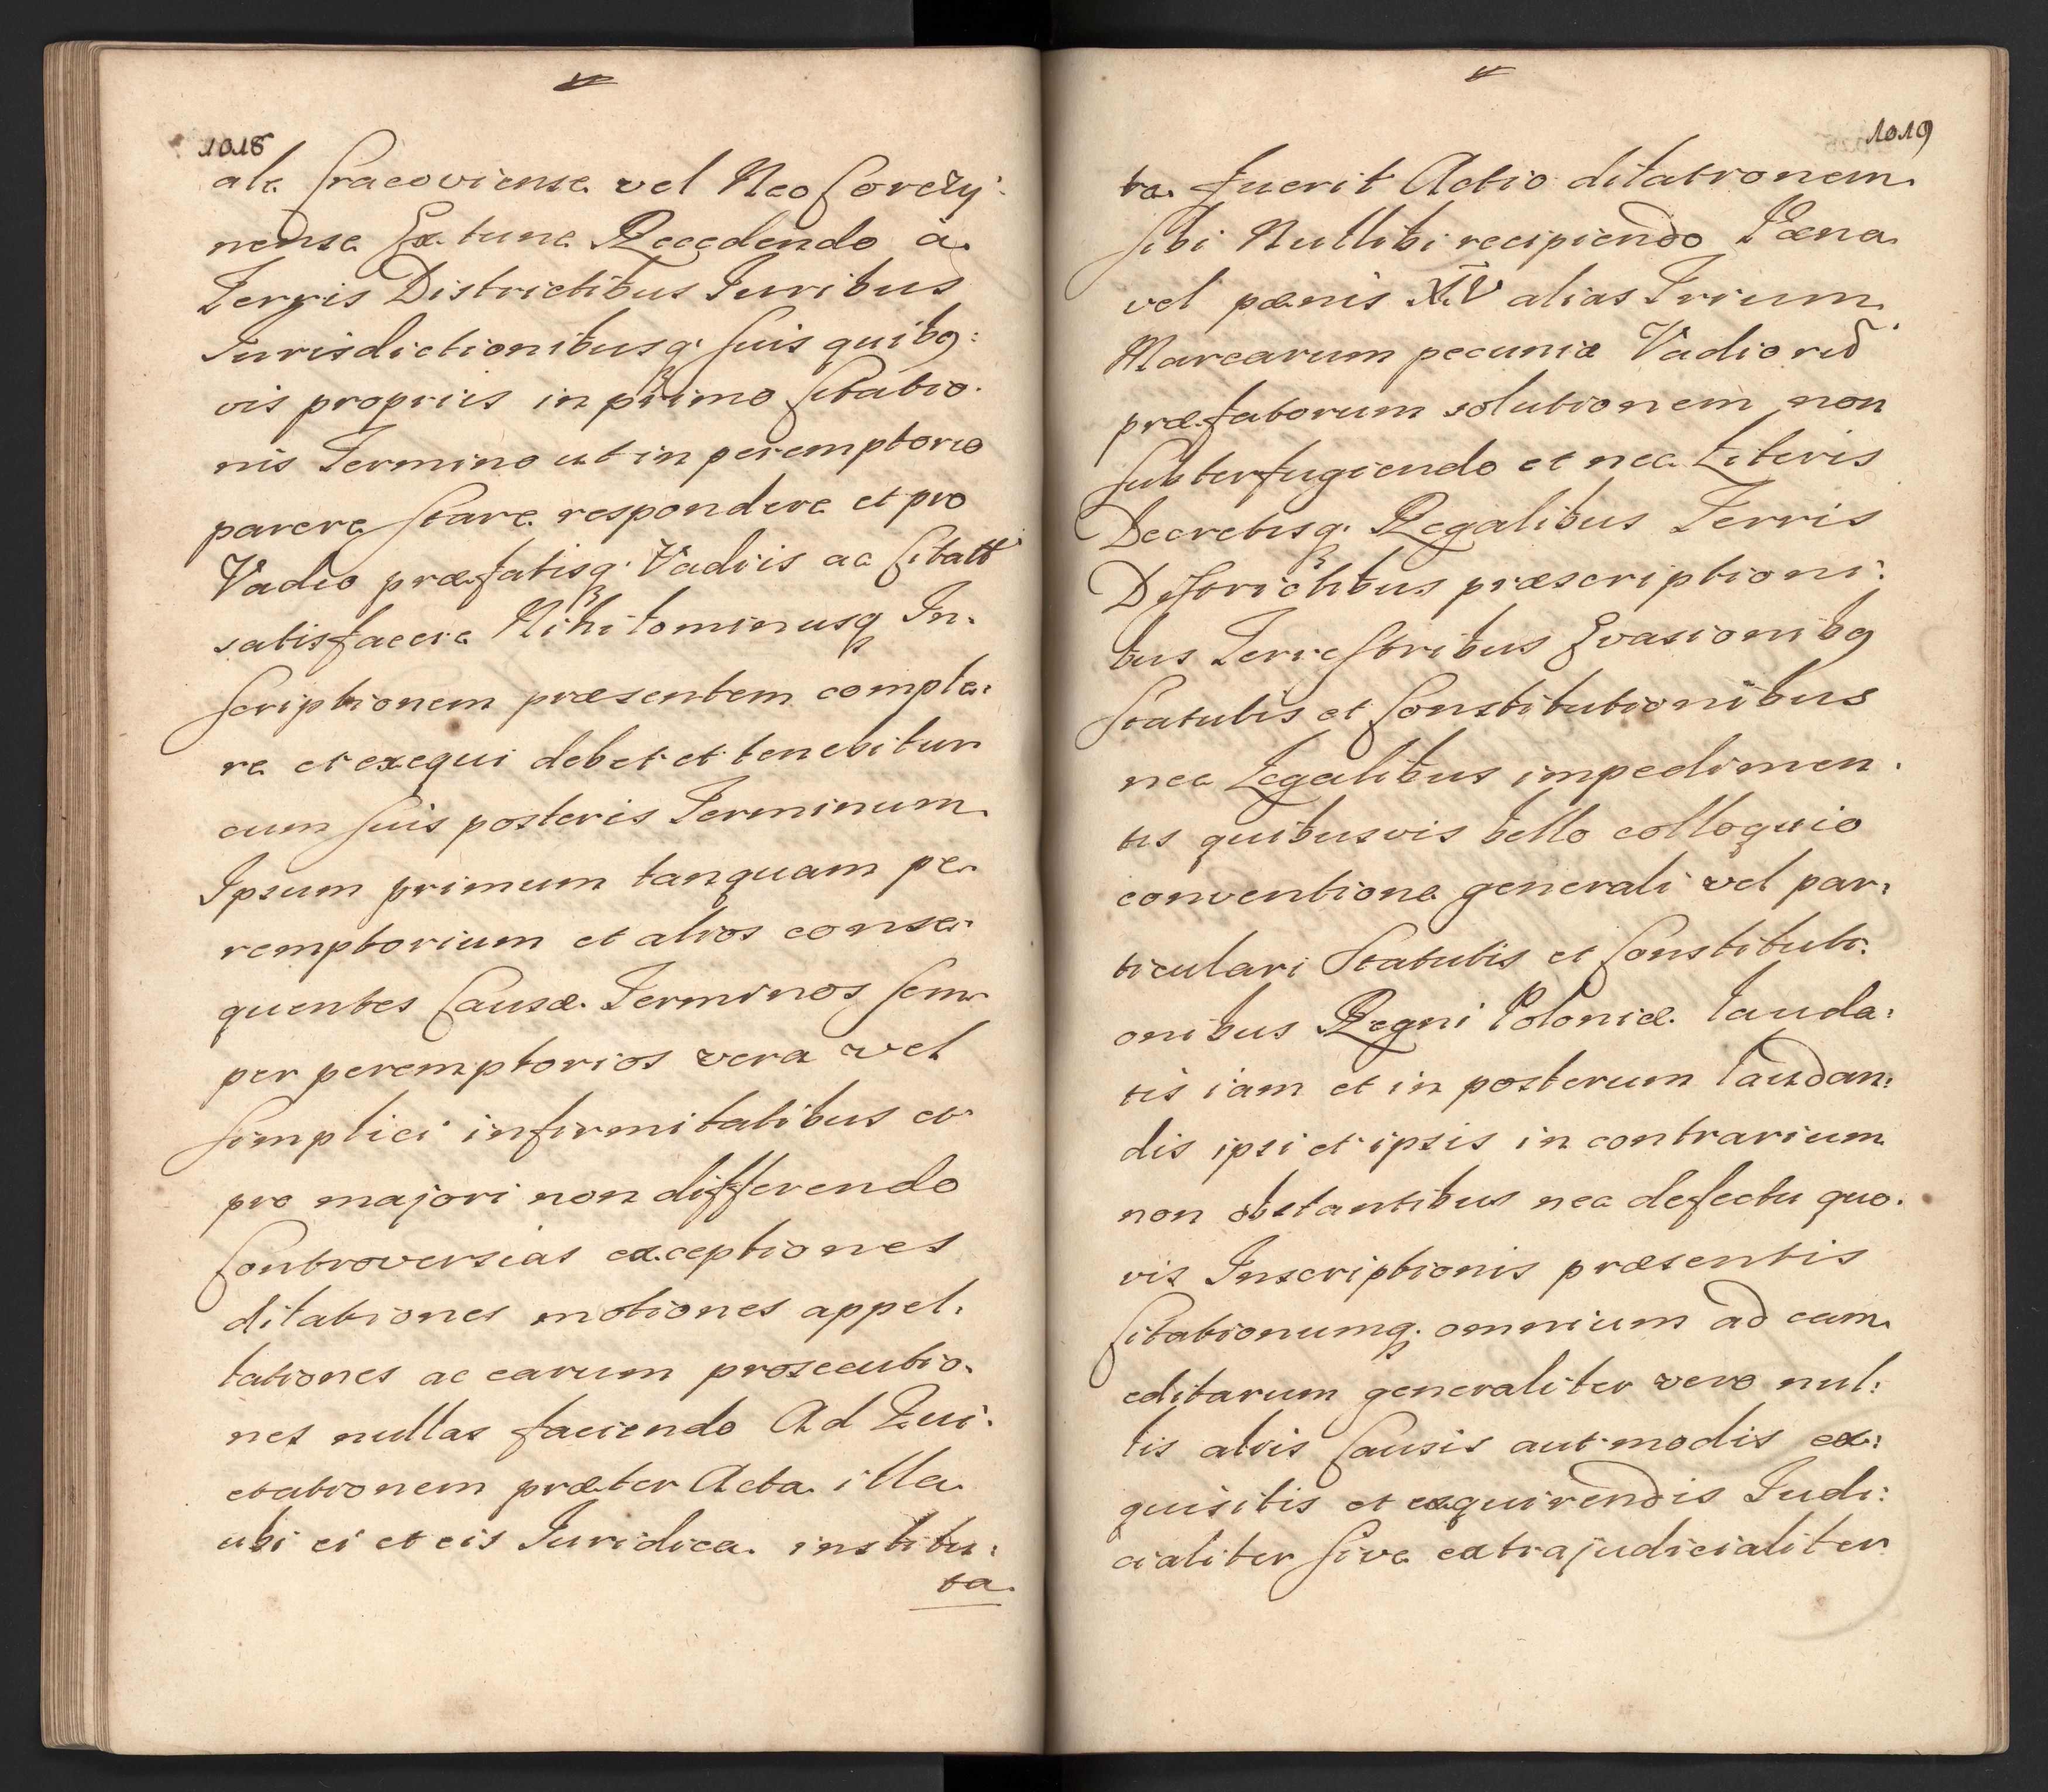 1018
ale Cracoviense vel Neo Corczy:
nense Ex tunc Recedendo à
Terris Districtibus Juribus
Jurisdictionibusq. suis quibq:
vis propriis in primo Citatio.
nis Termino ut in peremptorio
parere stare respondere et pro
Vadio præfatisq. Vadiis ac Citatt
satisfacere Nihilominusq In.
scriptionem præsentem comple:
re et exequi debet et tenebitur
cum suis posteris Terminum
Ipsum primum tanquam pe.
remptorium et alios conse.
quentes Causæ Terminos sem.
per peremptorios vera vel
simplici infirmitatibus et
pro majori non differendo
Controversias exceptiones
dilationes motiones appel.
lationes ac earum prosecutio.
nes nullas faciendo Ad Qui.
etationem præter Acta illa
ubi ei et eis Juridica institu:
ta.
1019
ta fuerit Actio dilationem
sibi Nullibi recipiendo Pæna
vel pænis XIV alias Trium
Marcarum pecuniæ Vadiorũ
præfatorum solutionem non
subterfugiendo et nec Literis
Decretisq. Regalibus Terris
Districtibus præscriptioni:
bus Terrestribus Evasionibq
Statutis et Constitutionibus
nec Legalibus impedimen.
tis quibusvis bello colloquio
conventione generali vel par:
ticulari Statutis et Constituti.
onibus Regni Poloniæ lauda:
tis iam et in posterum laudan:
dis ipsi et ipsis in contrarium
non obstantibus nec defectu quo.
vis Inscriptionis præsentis
Citationumq. omnium ad eam
editarum generaliter vero nul:
lis aliis Causis aut modis ex:
quisitis et exquirendis Judi:
cialiter sive extrajudicialiter